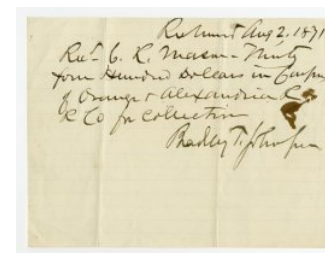 Richmond Aug 2. 1871
Recd. C. R. Mason - Ninety
four Hundred Dollars in Coupons
of Orange & Alexandria R
R Co for Collection
Bradley T. Johnson